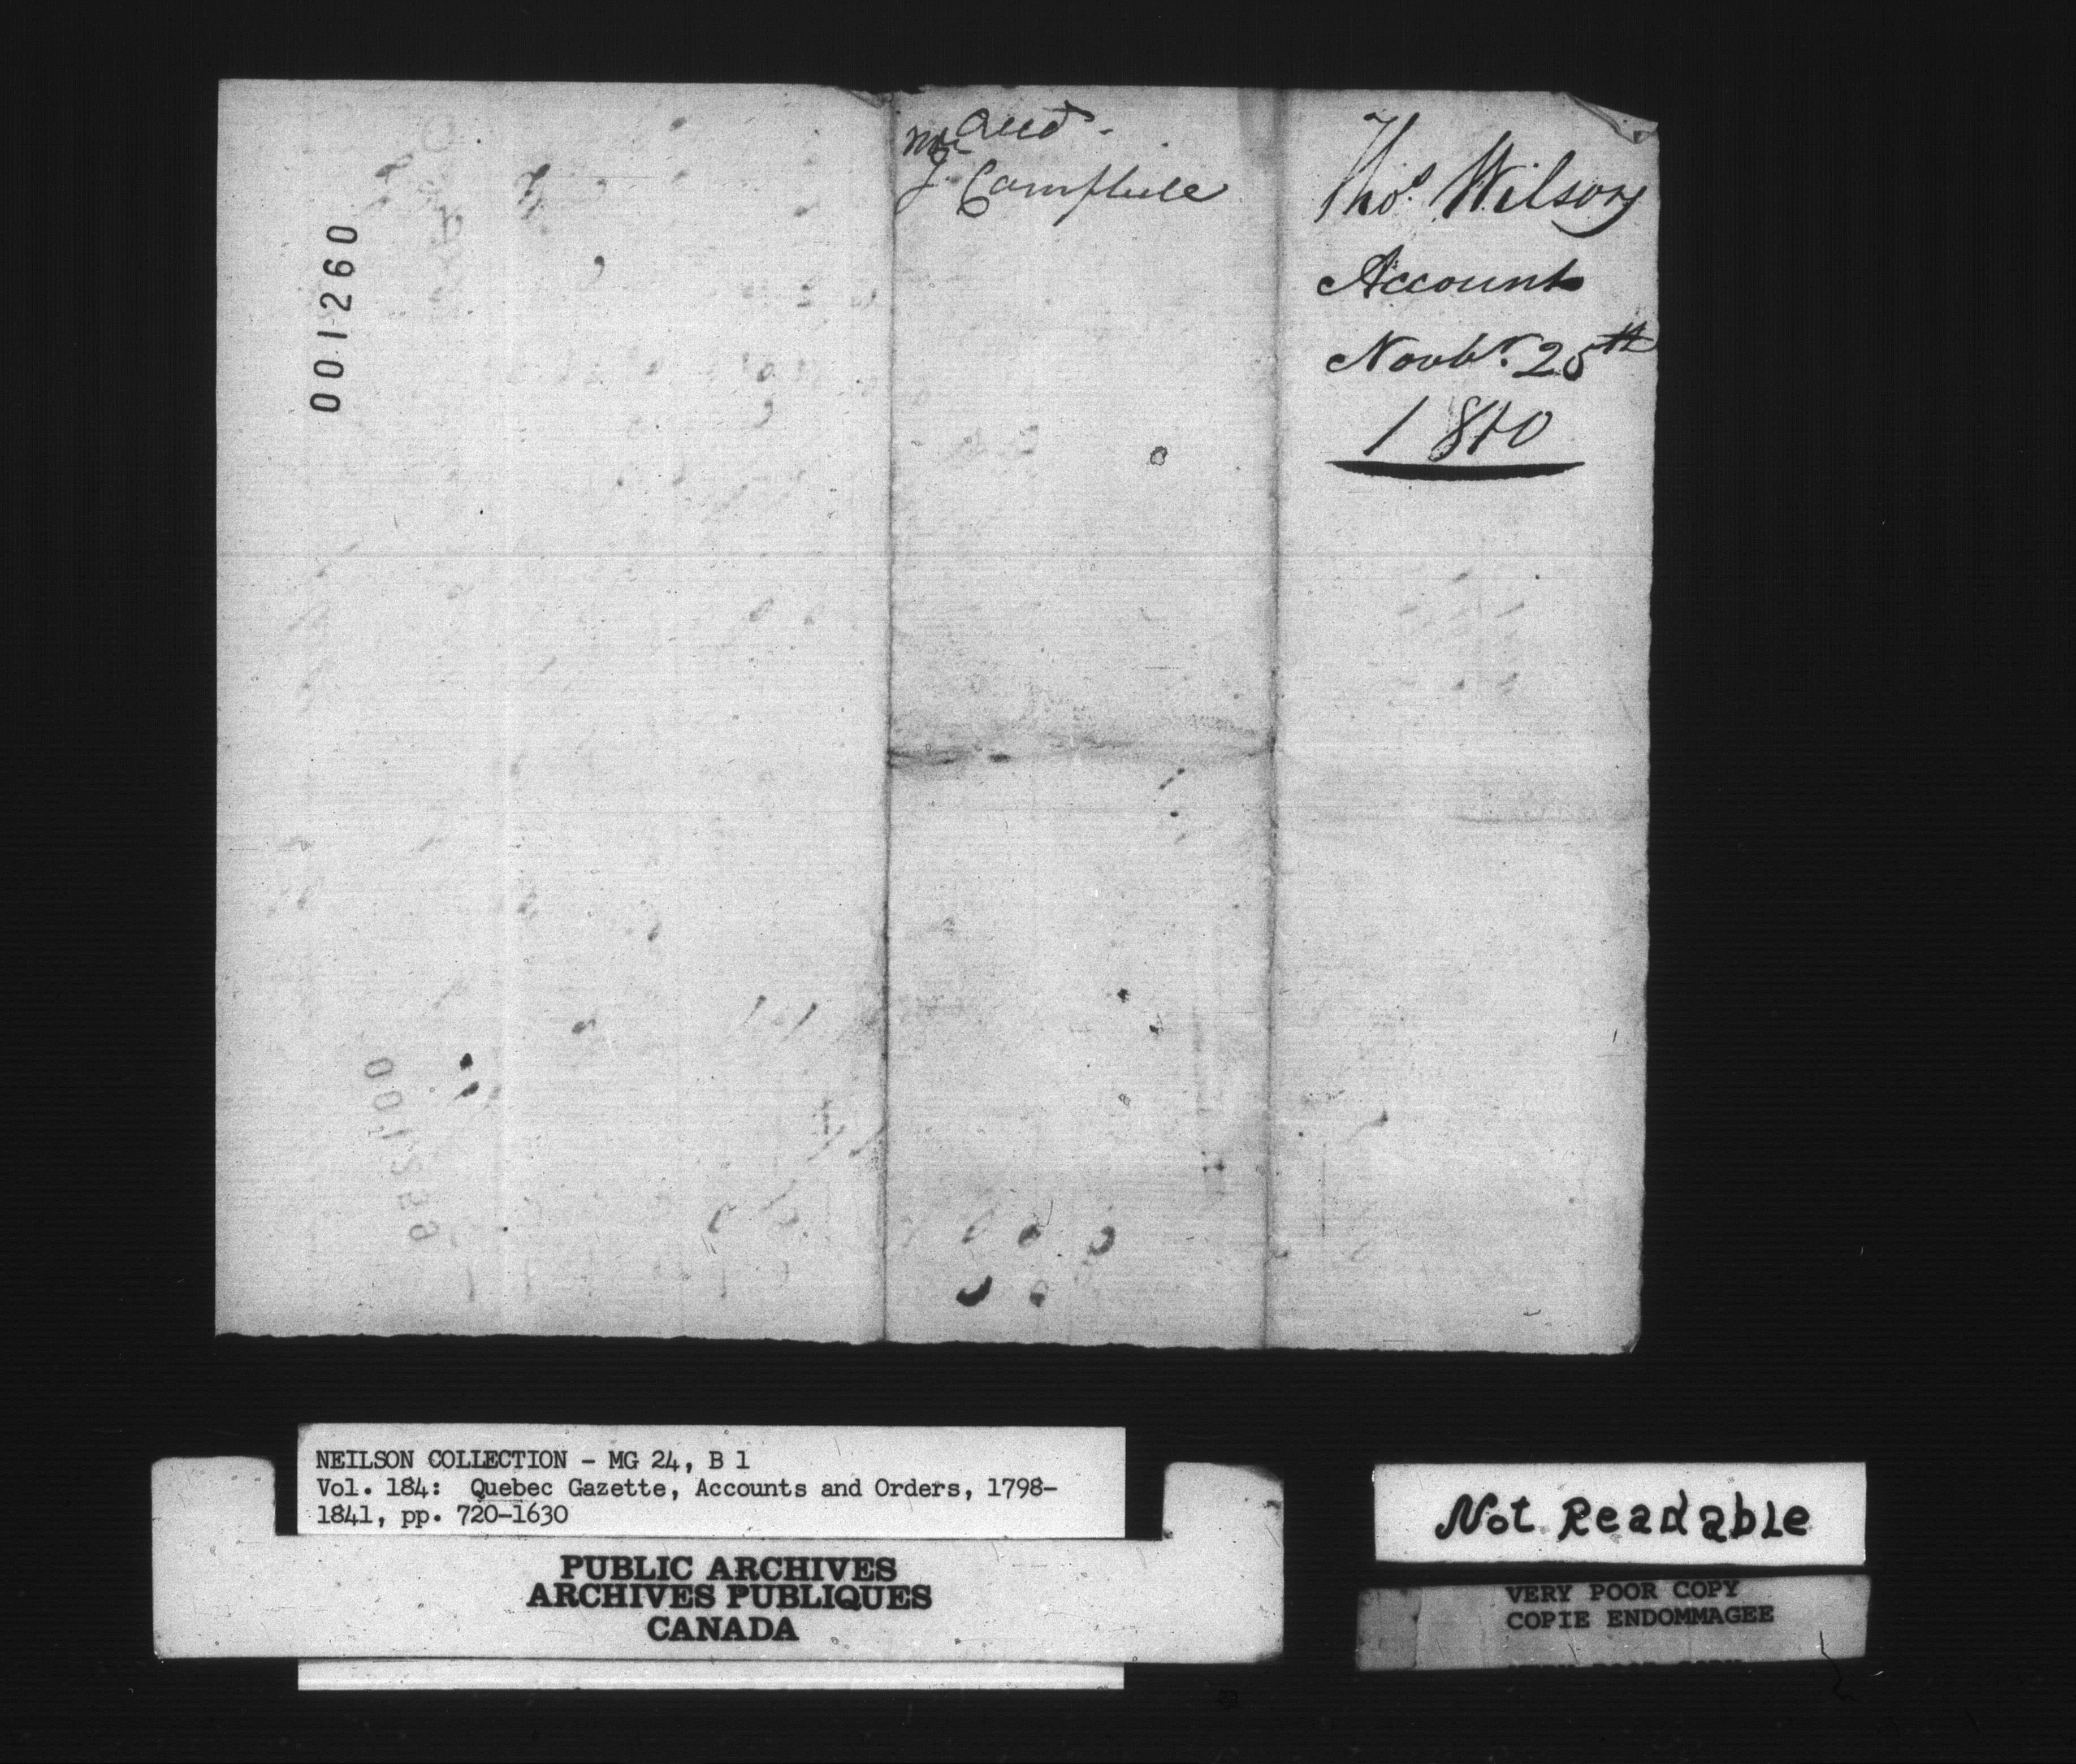 001260
Mr Aud.
J. Campbell
Thos. Wilson
Account
Novbr. 25th
1840
001259
NEILSON COLLECTION - MG 24, B 1
Vol. 184: Quebec Gazette, Accounts and Orders, 1798-
1841, pp. 720-1630
PUBLIC ARCHIVES
ARCHIVES PUBLIQUES
CANADA
Not Readable
VERY POOR COPY
COPIE ENDOMMAGEE